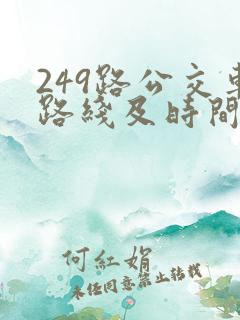 249路公交車
路綫及時間
何紅娟
未经同意禁止转载